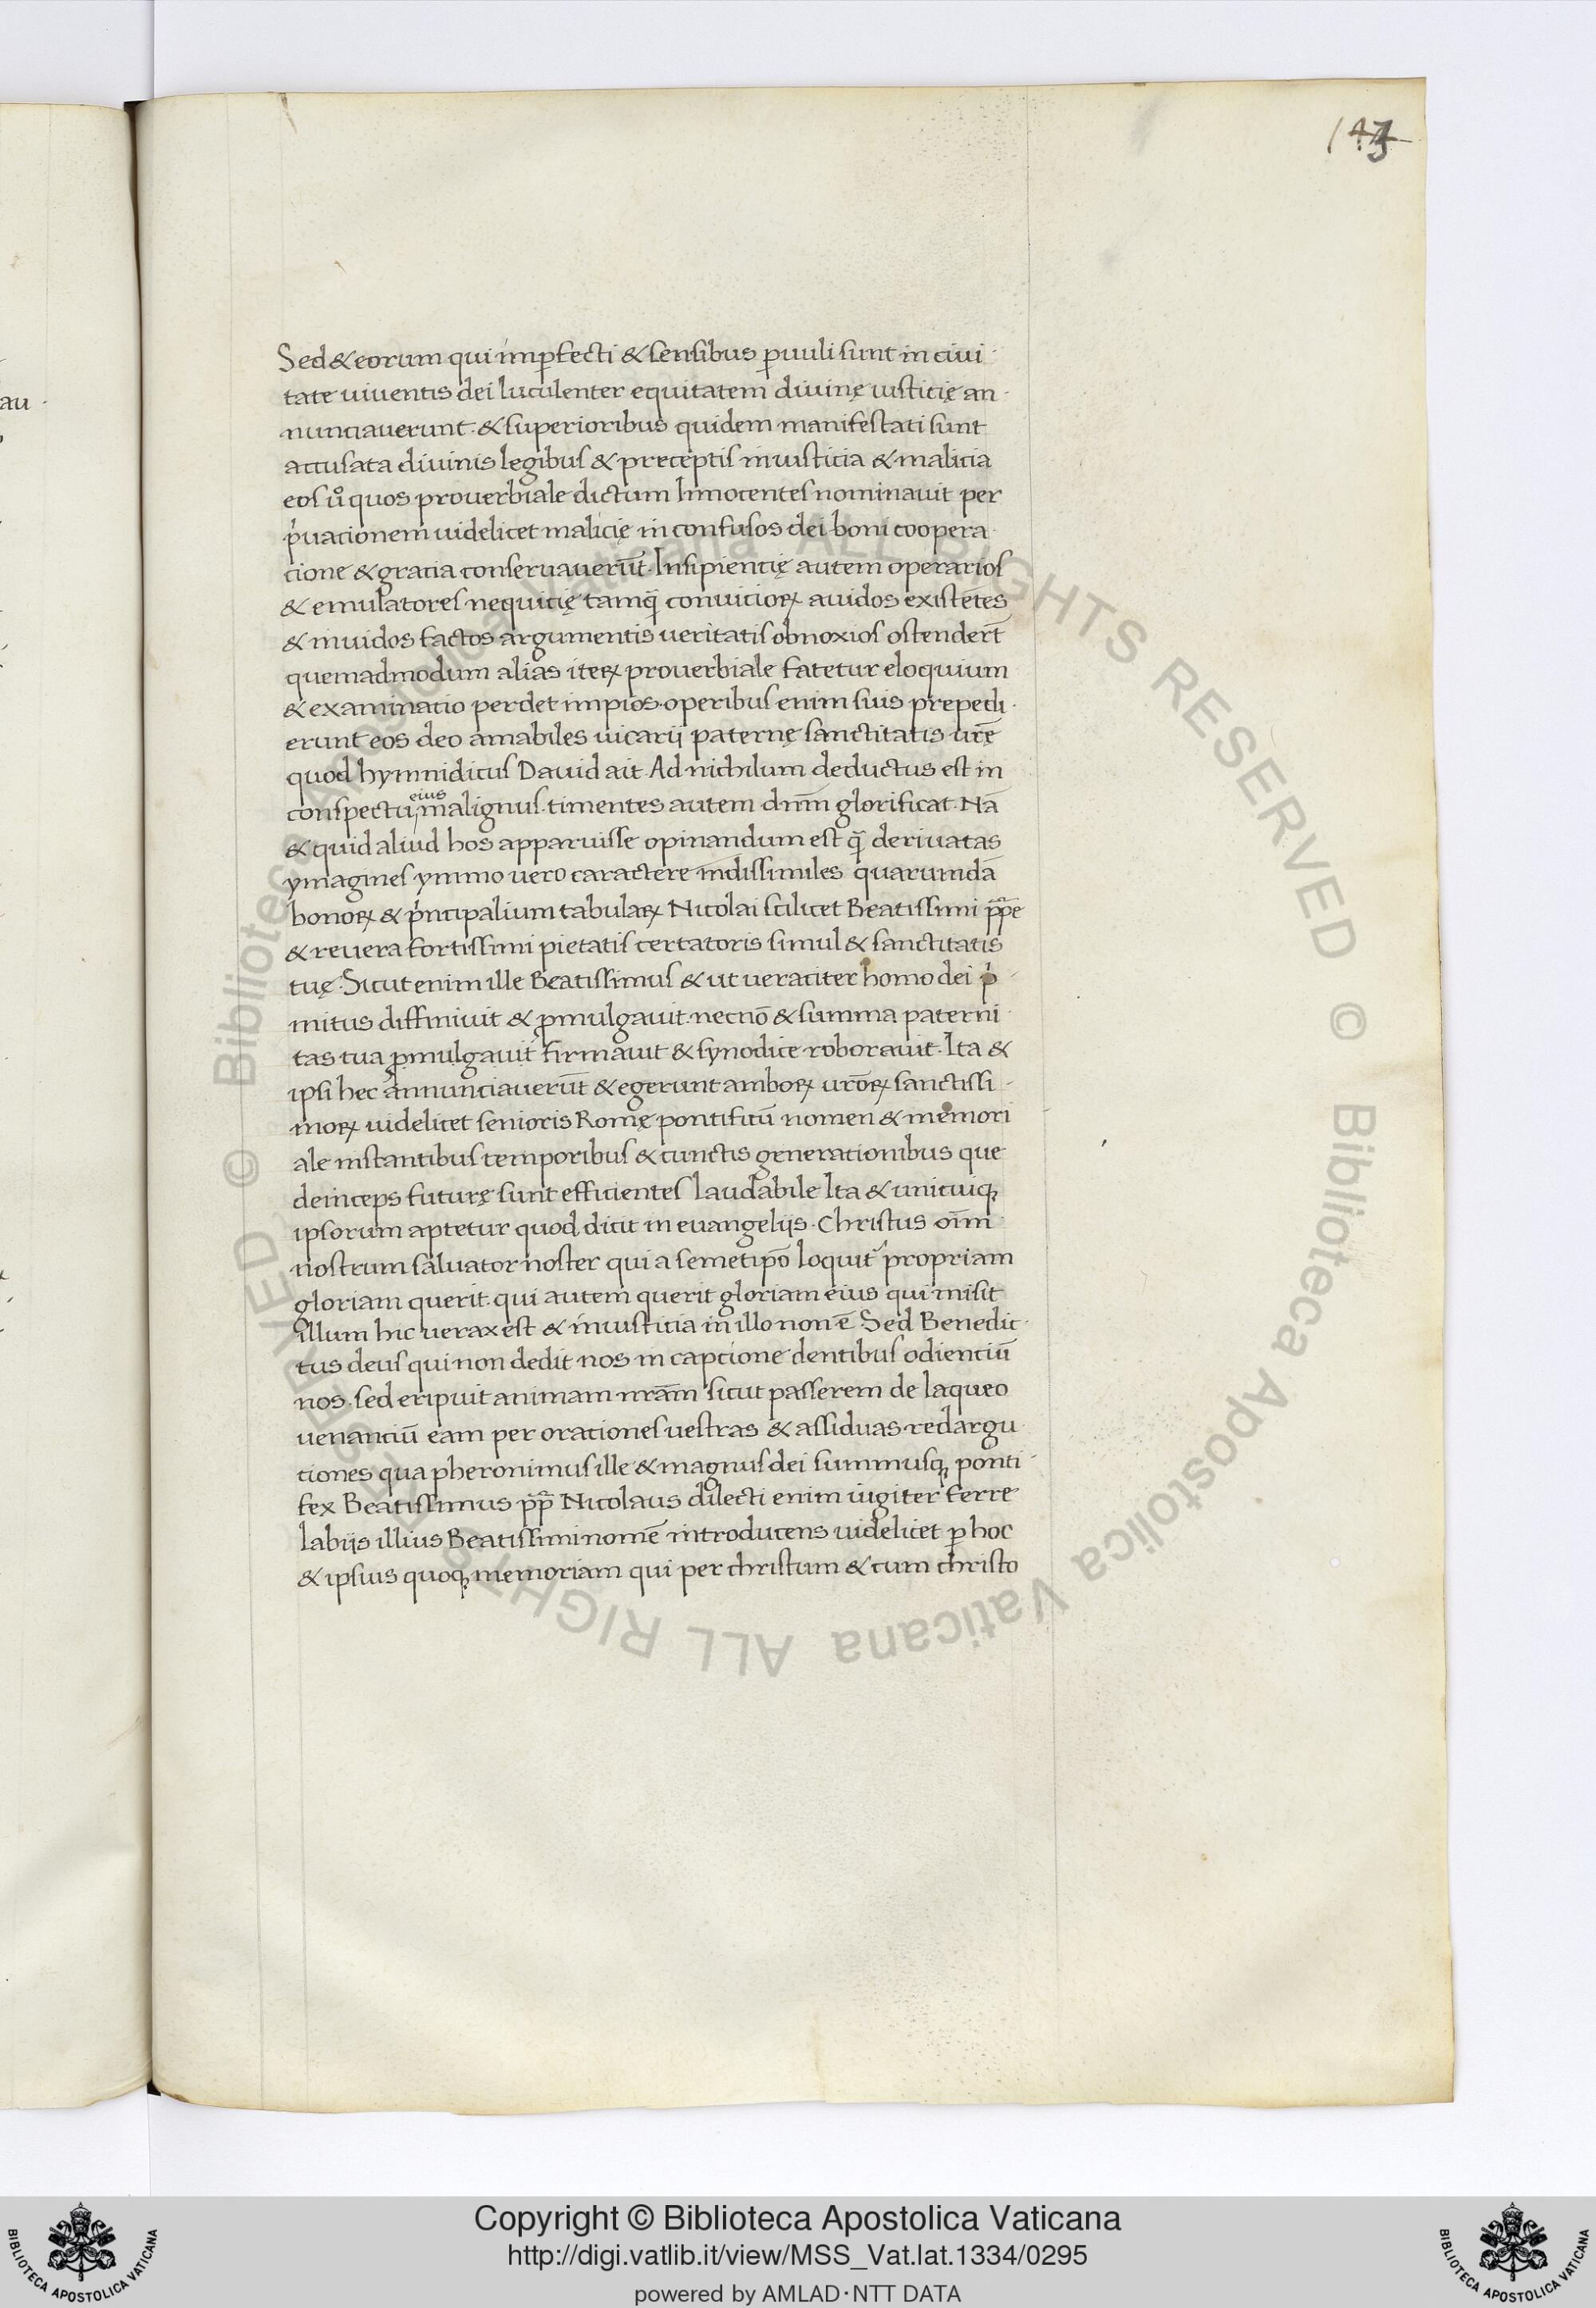 143
au
Sed & eorum qui imꝑfecti & sensibus ꝑuuli sunt in ciui·
tate uiuentis dei luculenter equitatem diuinę iusticię an·
nunciauerunt. & superioribus quidem manifestati sunt
accusata diuinis legibus & preceptis iniusticia & malicia
eos uͦ quos prouerbiale dictum Innocentes nominauit per
pͥuationem uidelicet malicię in confusos dei boni coopera
cione & gracia conseruauerūt. Insipiencię autem operarios
& emulatores nequicię tamq̄ conuicioꝝ auidos existētes
& inuidos factos argumentis ueritatis obnoxios ostender̄t
quemadmodum alias iteꝝ prouerbiale fatetur eloquium
& examinatio perdet impios. operibus enim suis prepedi·
erunt eos deo amabiles uicarij paternę sanctitatis ur̄ę
quod hymnidicus Dauid ait. Ad nichilum deductus est in
conspectu eius malignus. timentes autem dnm̄ glorificat. Nā
& quid aliud hos apparuisse opinandum est q̄ deriuatas
ymagines ymmo uero caractere indissimiles quarundā
bonoꝝ & pͥncipalium tabulaꝝ Nicolai scilicet Beatissimi pp̄e
& reuera fortissimi pietatis certatoris simul & sanctitatis
tuę. Sicut enim ille Beatissimus & ut ueraciter homo dei pͥ-
mitus diffiniuit & ꝓmulgauit. necnō & summa paterni·
tas tua ꝓmulgauit firmauit & synodice roborauit. Ita &
ipsi hec annunciauerūt & egerunt amboꝝ ur̄oꝝ sanctissi-
moꝝ uidelicet senioris Romę pontificū nomen & memori
ale instantibus temporibus & cunctis generationibus que
deinceps futurę sunt efficientes laudabile Ita & unicuiqꝫ
ipsorum aptetur quod dicit in euangelijs. Christus oīm
nostrum saluator noster qui a semetipō loquit᷑ propriam
gloriam querit. qui autem querit gloriam eius qui misit
illum hic uerax est & iniusticia in illo non ē Sed Benedic·
tus deus qui non dedit nos in capcione dentibus odienciū
nos. sed eripuit animam nr̄am sicut passerem de laqueo
uenanciū eam per orationes uestras & assiduas redargu
tiones qua pheronimus ille & magnus dei summusqꝫ ponti·
fex Beatissimus pp̄ Nicolaus dilecti enim iugiter ferre
labijs illius Beatissimi nomē introducens uidelicet ꝑ hoc
& ipsius quoqꝫ memoriam qui per christum & cum christo
© Biblioteca Apostolica Vaticana ALL RIGHTS RESERVED
© Biblioteca Apostolica Vaticana ALL RIGHTS RESERVED
Copyright © Biblioteca Apostolica Vaticana
http://digi.vatlib.it/view/MSS_Vat.lat.1334/0295
powered by AMLAD·NTT DATA
BIBLIOTECA APOSTOLICA VATICANA
BIBLIOTECA APOSTOLICA VATICANA